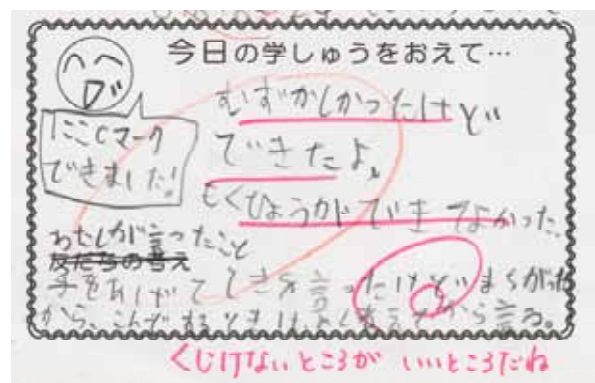 今日の学しゅうをおえて…
にこCマーク
できました!
むずかしかったけど
できたよ。
もくひょうができてよかった。
わたしが言ったこと
友だちの考え
手をあげてしきを言ったけどまちがった
から、こんどするときはよく考えてから言う。
くじけないところが いいところだね